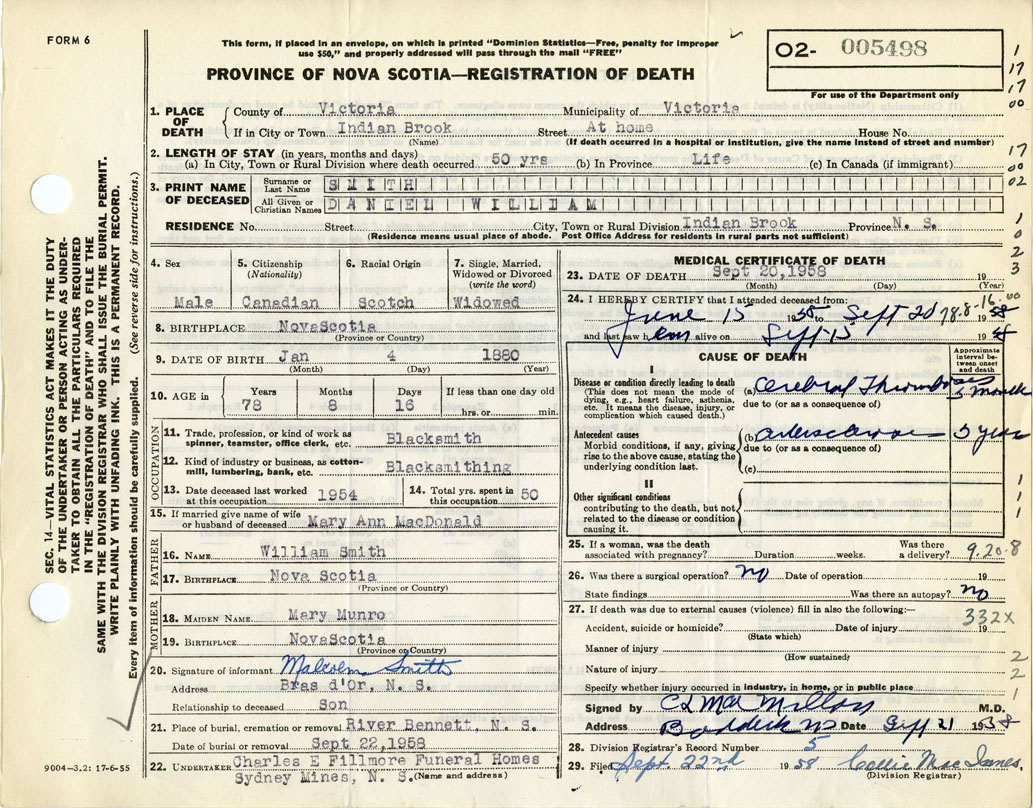 FORM 6
This form, if placed in an envelope, on which is printed "Dominion Statistics—Free, penalty for improper
use $50," and properly addressed will pass through the mail "FREE"
O2- 005498
For use of the Department only
PROVINCE OF NOVA SCOTIA—REGISTRATION OF DEATH
1. PLACE OF DEATH
County of Victoria Municipality of Victoria
If in City or Town Indian Brook Street At home House No.
(Name) (If death occurred in a hospital or institution, give the name instead of street and number)
2. LENGTH OF STAY (in years, months and days)
(a) In City, Town or Rural Division where death occurred 50 yrs (b) In Province Life (c) In Canada (if immigrant)
3. PRINT NAME OF DECEASED
Surname or Last Name SMITH
All Given or Christian Names DANIEL WILLIAM
RESIDENCE No. Street City, Town or Rural Division Indian Brook Province N. S.
(Residence means usual place of abode. Post Office Address for residents in rural parts not sufficient)
4. Sex Male
5. Citizenship (Nationality) Canadian
6. Racial Origin Scotch
7. Single, Married, Widowed or Divorced (write the word) Widowed
8. BIRTHPLACE NovaScotia
(Province or Country)
9. DATE OF BIRTH Jan 4 1880
(Month) (Day) (Year)
10. AGE in Years Months Days If less than one day old
78 8 16 hrs. or min.
OCCUPATION
11. Trade, profession, or kind of work as spinner, teamster, office clerk, etc. Blacksmith
12. Kind of industry or business, as cotton-mill, lumbering, bank, etc. Blacksmithing
13. Date deceased last worked at this occupation 1954
14. Total yrs. spent in this occupation 50
15. If married give name of wife or husband of deceased Mary Ann MacDonald
FATHER
16. NAME William Smith
17. BIRTHPLACE Nova Scotia
(Province or Country)
MOTHER
18. MAIDEN NAME Mary Munro
19. BIRTHPLACE NovaScotia
(Province or Country)
20. Signature of informant Malcolm Smith
Address Bras d'Or, N. S.
Relationship to deceased Son
21. Place of burial, cremation or removal River Bennett, N. S.
Date of burial or removal Sept 22,1958
22. UNDERTAKER Charles E Fillmore Funeral Homes
Sydney Mines, N. S. (Name and address)
MEDICAL CERTIFICATE OF DEATH
23. DATE OF DEATH Sept 20,1958 19
(Month) (Day) (Year)
24. I HEREBY CERTIFY that I attended deceased from:
June 15 1958 to Sept 20 78-8-16 1958
and last saw him alive on Sept 15 1958
CAUSE OF DEATH
Approximate interval between onset and death
I
Disease or condition directly leading to death
(This does not mean the mode of dying, e.g., heart failure, asthenia, etc. It means the disease, injury, or complication which caused death.)
(a) Cerebral Thrombosis 3 months
due to (or as a consequence of)
Antecedent causes
Morbid conditions, if any, giving rise to the above cause, stating the underlying condition last.
(b) 5 years
due to (or as a consequence of)
(c)
II
Other significant conditions
contributing to the death, but not related to the disease or condition causing it.
25. If a woman, was the death associated with pregnancy? Duration weeks. Was there a delivery?
9.20-8
26. Was there a surgical operation? no Date of operation 19
State findings Was there an autopsy? no
27. If death was due to external causes (violence) fill in also the following:—
332X
Accident, suicide or homicide? Date of injury 19
(State which)
Manner of injury
(How sustained)
Nature of injury
Specify whether injury occurred in industry, in home, or in public place
Signed by C L MacMillan M.D.
Address Baddeck NS Date Sept 21 1958
28. Division Registrar's Record Number 5
29. Filed Sept. 22nd 1958 Callie MacInnes
(Division Registrar)
SEC. 14—VITAL STATISTICS ACT MAKES IT THE DUTY
OF THE UNDERTAKER OR PERSON ACTING AS UNDER-
TAKER TO OBTAIN ALL THE PARTICULARS REQUIRED
IN THE "REGISTRATION OF DEATH" AND TO FILE THE
SAME WITH THE DIVISION REGISTRAR WHO SHALL ISSUE THE BURIAL PERMIT.
WRITE PLAINLY WITH UNFADING INK. THIS IS A PERMANENT RECORD.
Every item of information should be carefully supplied. (See reverse side for instructions.)
9004—3.2: 17-6-55
1
17
17
00
17
00
02
1
0
2
3
00
1
1
1
2
2
1